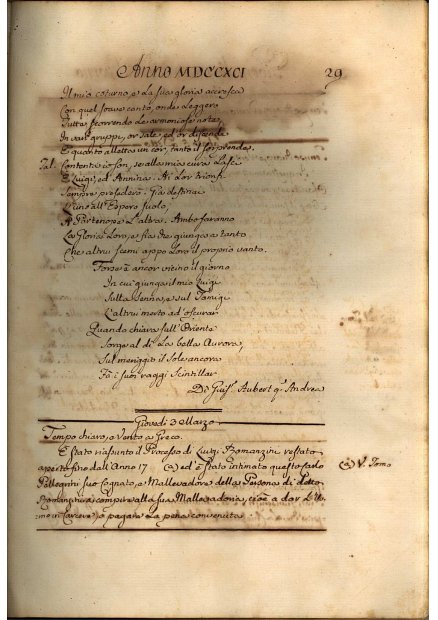 Anno MDCCXCI
29
Il mio coturno, e la sua gloria accresca
Con quel soave canto, onde Leggero
Tutte scorrendo le armoniose note,
In varj gruppi, or sale, ed or discende
E quanto alletta un cor, tanto il sorprende.
Tal. Contente io son, se alla mia cura Lasci
E Luigi, ed Annina. Ai Lor trionfi
Sempre presederò. Già destinai
L'uno all'Espero suolo,
A Partenope L'altra. Ambo faranno
La Gloria Loro, e fia che giunga a tanto
Che altrui scemi appo Loro il proprio vanto.
Forse è ancor vicino il giorno
In cui giunga il mio Luigi
Sulla Senna, e sul Tamigi
L'altrui merto ad oscurar
Quando chiara sull'Oriente
Sorge al dì La bella Aurora,
Sul meriggio il Sole ancora
Fà i suoi raggi Scintillar
Di Giuse. Aubert q. Andrea
Giovedì 3 Marzo
Tempo chiaro, e Vento a Greco.
È Stato riassunto il Processo di Luigi Romanzini restato
aperto fino dall'Anno 17 (a) ed è Stato intimato questo Carlo
Pellegrini suo Cognato, e Mallevadore della Persona di detto
Romanzini a compire alla sua Mallevadoria, cioè a dar L'
in Carcere, o pagare La pena convenuta
(a) V. Tomo